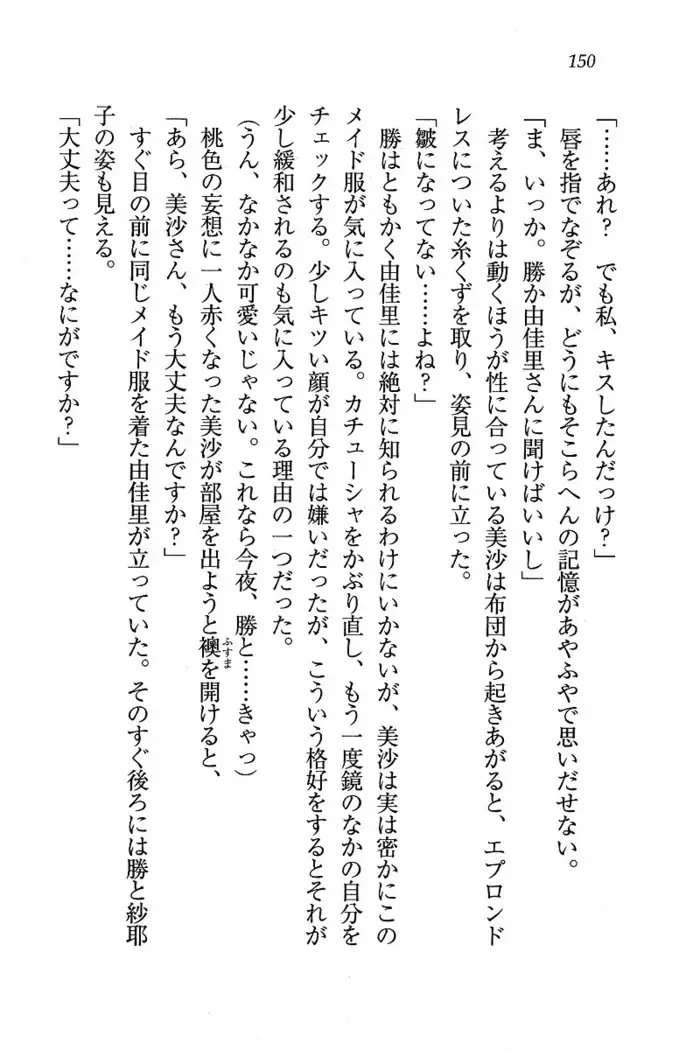 150
「……あれ？　でも私、キスしたんだっけ？」
唇を指でなぞるが、どうにもそこらへんの記憶があやふやで思いだせない。
「ま、いっか。勝か由佳里さんに聞けばいいし」
考えるよりは動くほうが性に合っている美沙は布団から起きあがると、エプロンド
レスについた糸くずを取り、姿見の前に立った。
「皺になってない……よね？」
勝はともかく由佳里には絶対に知られるわけにいかないが、美沙は実は密かにこの
メイド服が気に入っている。カチューシャをかぶり直し、もう一度鏡のなかの自分を
チェックする。少しキツい顔が自分では嫌いだったが、こういう格好をするとそれが
少し緩和されるのも気に入っている理由の一つだった。
（うん、なかなか可愛いじゃない。これなら今夜、勝と……きゃっ）
桃色の妄想に一人赤くなった美沙が部屋を出ようと襖ふすまを開けると、
「あら、美沙さん、もう大丈夫なんですか？」
すぐ目の前に同じメイド服を着た由佳里が立っていた。そのすぐ後ろには勝と紗耶
子の姿も見える。
「大丈夫って……なにがですか？」